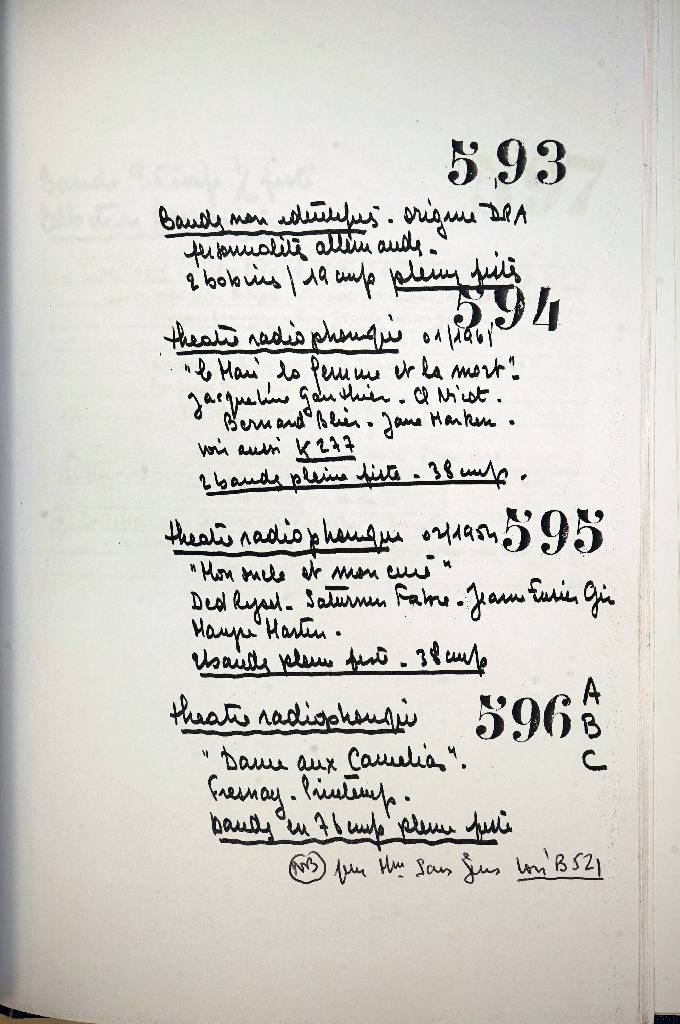 593
Bande non identifiés. origine DRA
personnalités allemande.
2 bobines / 19 cm/s pleine piste
594
theatre radiophonique 01/1961
"le Mari la femme et la mort".
Jacqueline Gauthier. Cl Nicot.
Bernard Blier. Jane Marken.
voir aussi K277
2 bande pleine piste. 38 cm/s.
595
theatre radiophonique 02/1954
"Mon oncle et mon curé"
Ded Rysel. Saturnin Fabre. Jeanne Fusier Gir
Martin.
2 bande pleine piste. 38 cm/s
596 A
B
C
theatre radiophonique
"Dame aux Camelias".
Fresnay. Printemps.
bande en 76 cm/s pleine piste
NB pour Mme Sans Gêne voir B521